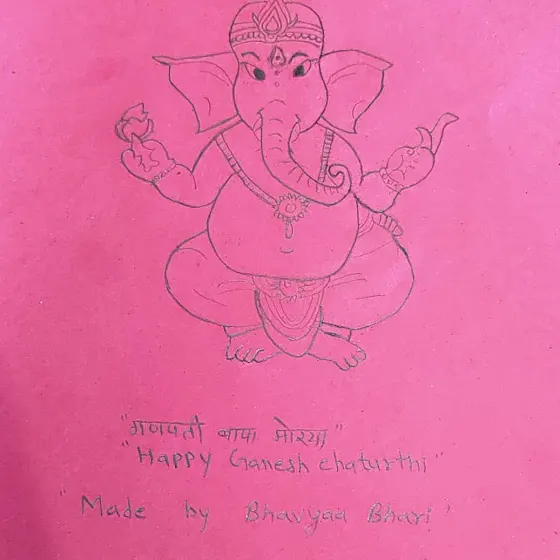 "गणपती बापा मोरया"
"Happy Ganesh chaturthi"
"Made by Bhavyaa Bhari"